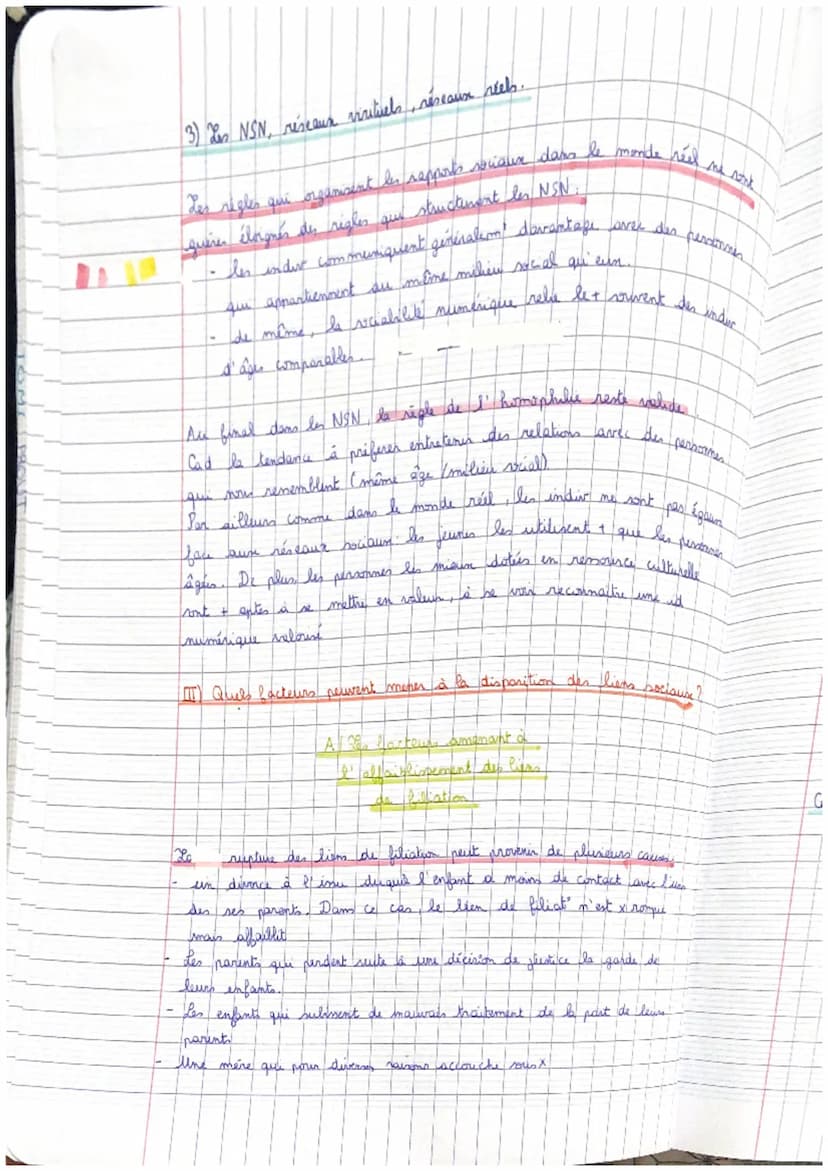 3) Les NSN, réseaux virutuels, réseaux réels.
Les règles qui organisent les rapports sociaux dans le monde réel ne sont
guères éloignés des règles qui structurent les NSN :
- les indiv communiquent généralem' davantage avec des personnes
qui appartiennent au même milieu social qu'eux.
- de même, la sociabilité numérique relie le + souvent des indiv
d'âges comparables.
Au final dans les NSN, la règle de l'homophilie reste valide
Cad la tendance à préférer entretenir des relations avec des personnes
qui nous ressemblent (même âge /milieu social)
Par ailleurs comme dans le monde réel, les indiv ne sont pas égaux
face aux réseaux sociaux: les jeunes les utilisent + que les personnes
âgées. De plus, les personnes les mieux dotées en ressource culturelle
sont + aptes à se mettre en valeur, à se voir reconnaître une id
numérique valorisé
III) Quels facteurs peuvent mener à la disparition des liens sociaux ?
A/ Les facteurs amenant à
l'affaiblissement des liens
de filiation
La rupture des liens de filiation peut provenir de plusieurs causes
- un divorce à l'issu duquel l'enfant a moins de contact avec l'un
des ses parents. Dans ce cas, le lien de filiat° n'est x rompu
mais affaiblit
- Les parents qui perdent suite à une décision de justice la garde de
leurs enfants.
- Les enfants qui subissent de mauvais traitement de la part de leurs
parents
- Une mère qui pour diverses raisons accouche sous X